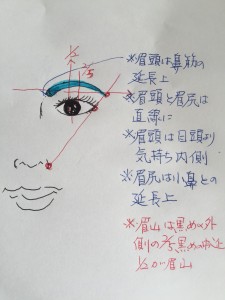 ½
⅔
※眉頭は鼻筋の
延長上
※眉頭と眉尻は
直線に
※眉頭は目頭より
気持ち内側
※眉尻は小鼻との
延長上
※眉山は黒め外
側の⅔黒めの
½が眉山